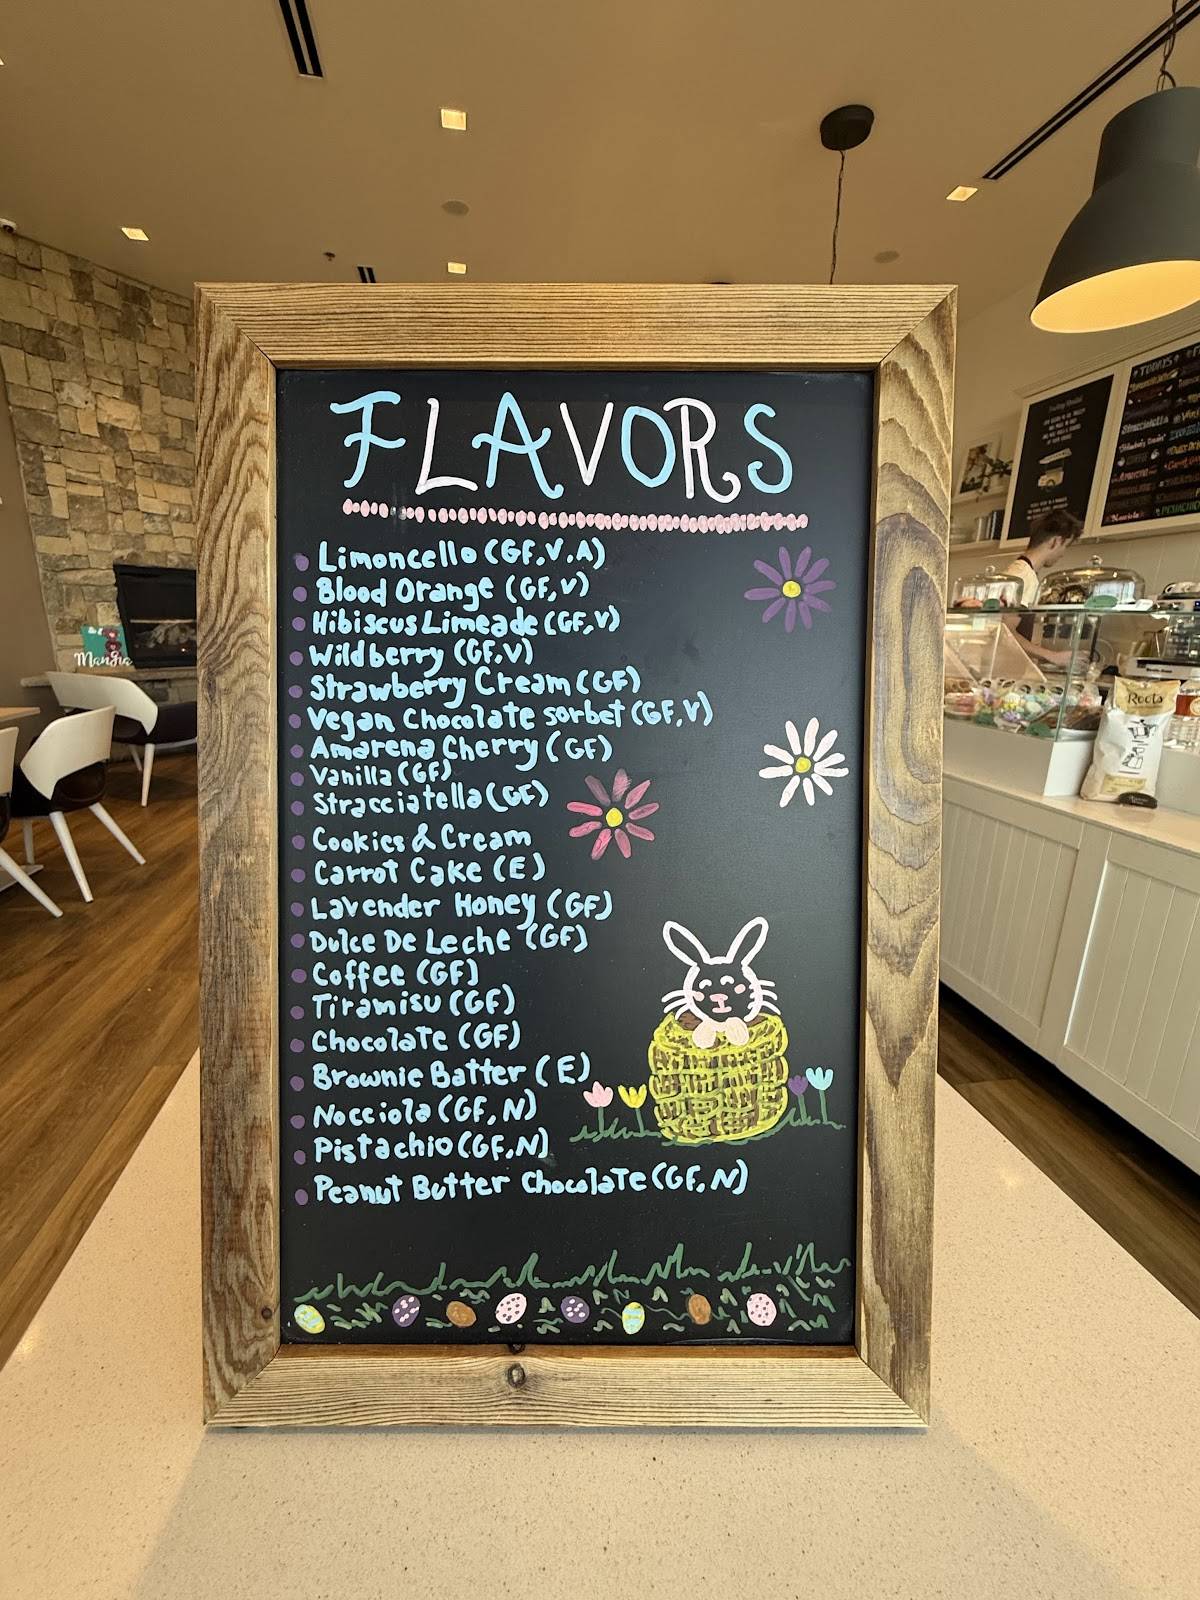 FLAVORS
Limoncello (GF, V, A)
Blood Orange (GF, V)
Hibiscus Limeade (GF, V)
Wildberry (GF, V)
Strawberry Cream (GF)
Vegan Chocolate sorbet (GF, V)
Amarena Cherry (GF)
Vanilla (GF)
Stracciatella (GF)
Cookies & Cream
Carrot Cake (E)
Lavender Honey (GF)
Dulce De Leche (GF)
Coffee (GF)
Tiramisu (GF)
Chocolate (GF)
Brownie Batter (E)
Nocciola (GF, N)
Pistachio (GF, N)
Peanut Butter Chocolate (GF, N)
Mangia
Roots
TODAYS
Stracciatella